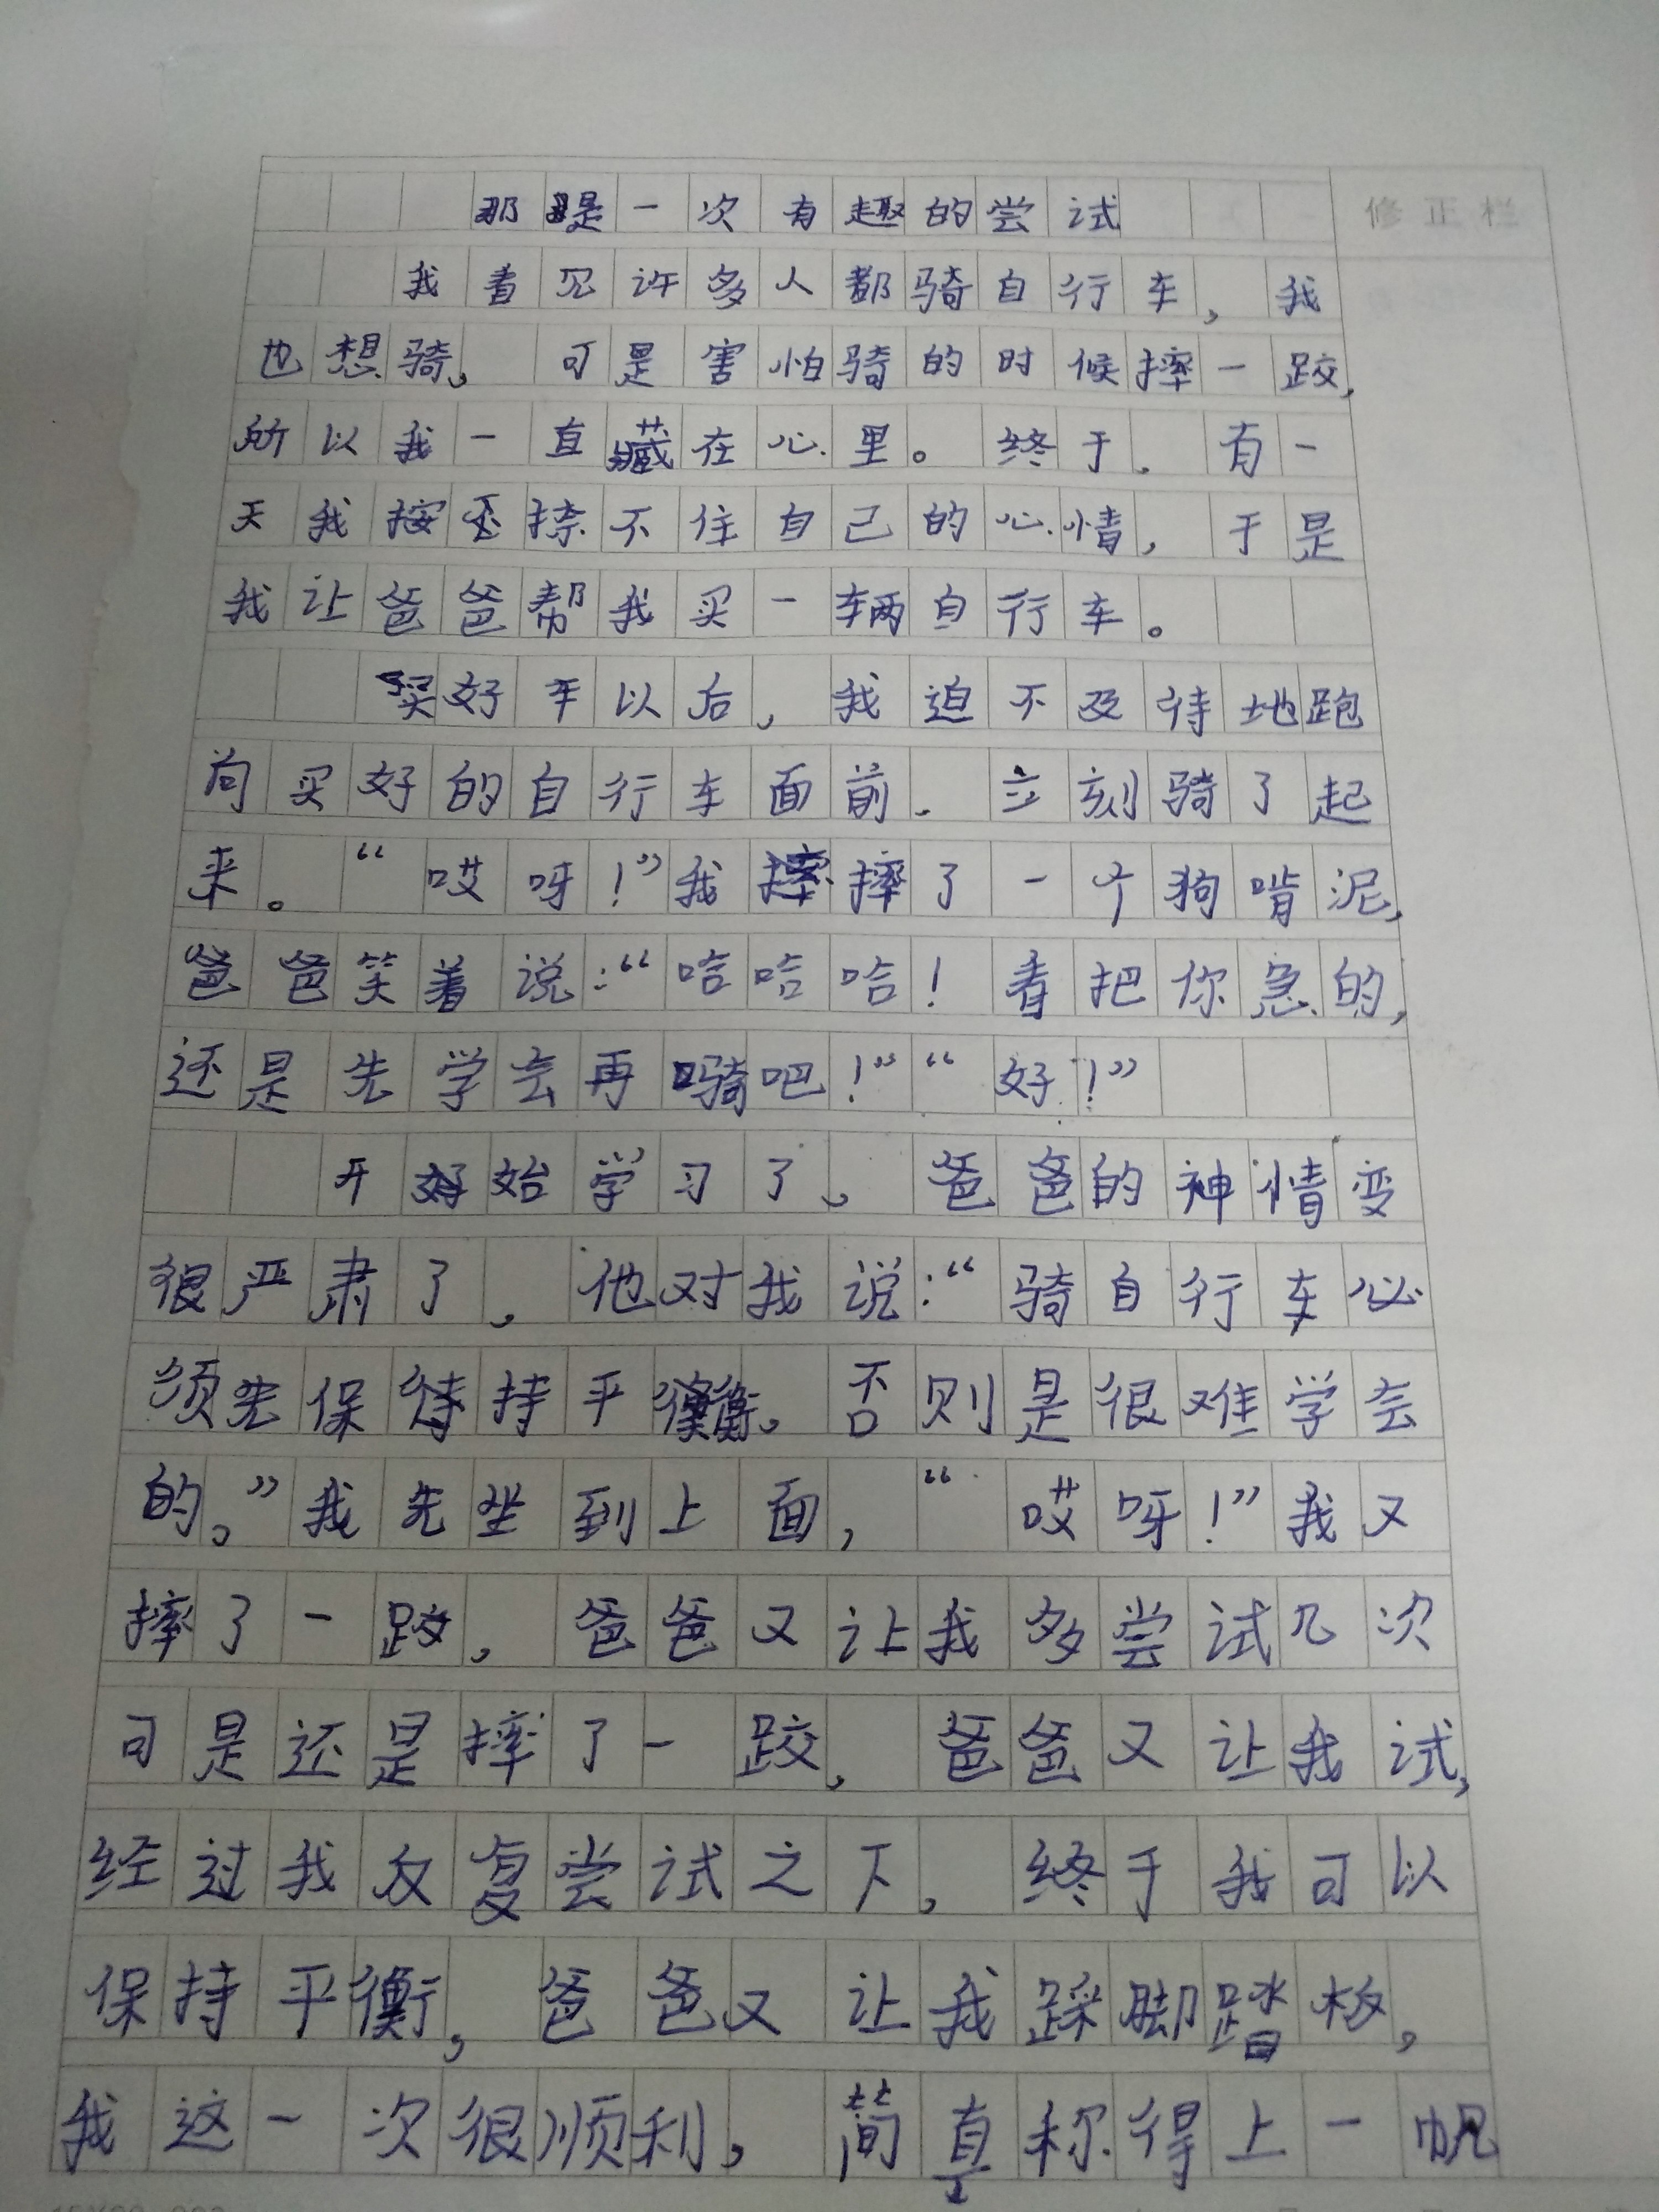 那是一次有趣的尝试
修正栏
我看见许多人都骑自行车,我
也想骑。可是害怕骑的时候摔一跤,
所以我一直藏在心里。终于,有一
天我按捺不住自己的心情,于是
我让爸爸帮我买一辆自行车。
买好车以后,我迫不及待地跑
向买好的自行车面前,立刻骑了起
来。“哎呀!”我摔了一个狗啃泥,
爸爸笑着说:“哈哈哈!看把你急的,
还是先学会再骑吧!”“好!”
开始学习了,爸爸的神情变
很严肃了,他对我说:“骑自行车必
须先保持平衡。否则是很难学会
的。”我先坐到上面,“哎呀!”我又
摔了一跤,爸爸又让我多尝试几次
可是还是摔了一跤,爸爸又让我试,
经过我反复尝试之下,终于我可以
保持平衡,爸爸又让我踩脚踏板,
我这一次很顺利,简直称得上一帆